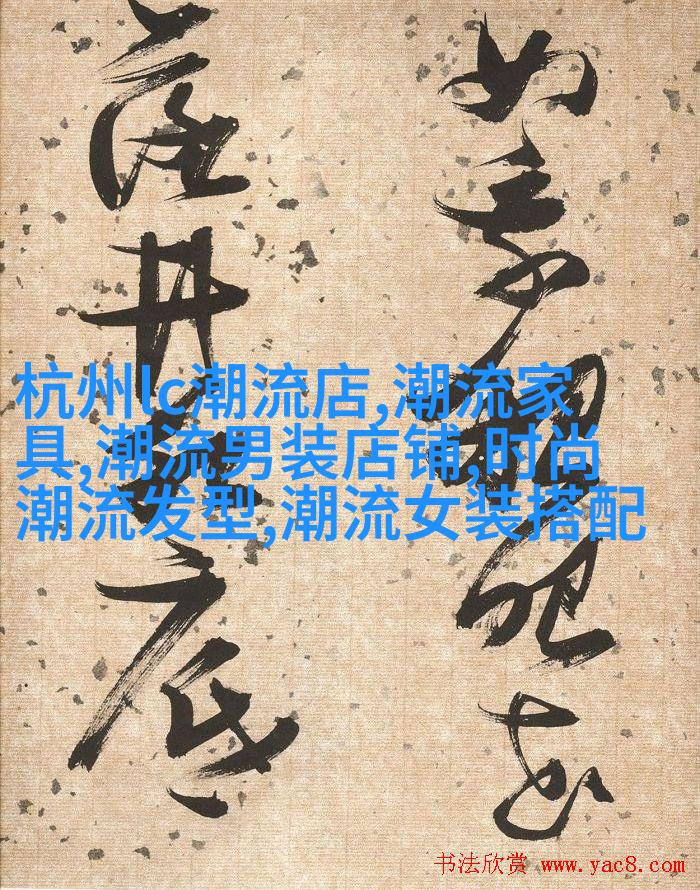 似乘船眼花
落井水底
杭州lc潮流店,潮流家
具,潮流男装店铺,时尚
潮流发型,潮流女装搭配
书法欣赏 www.yac8.com